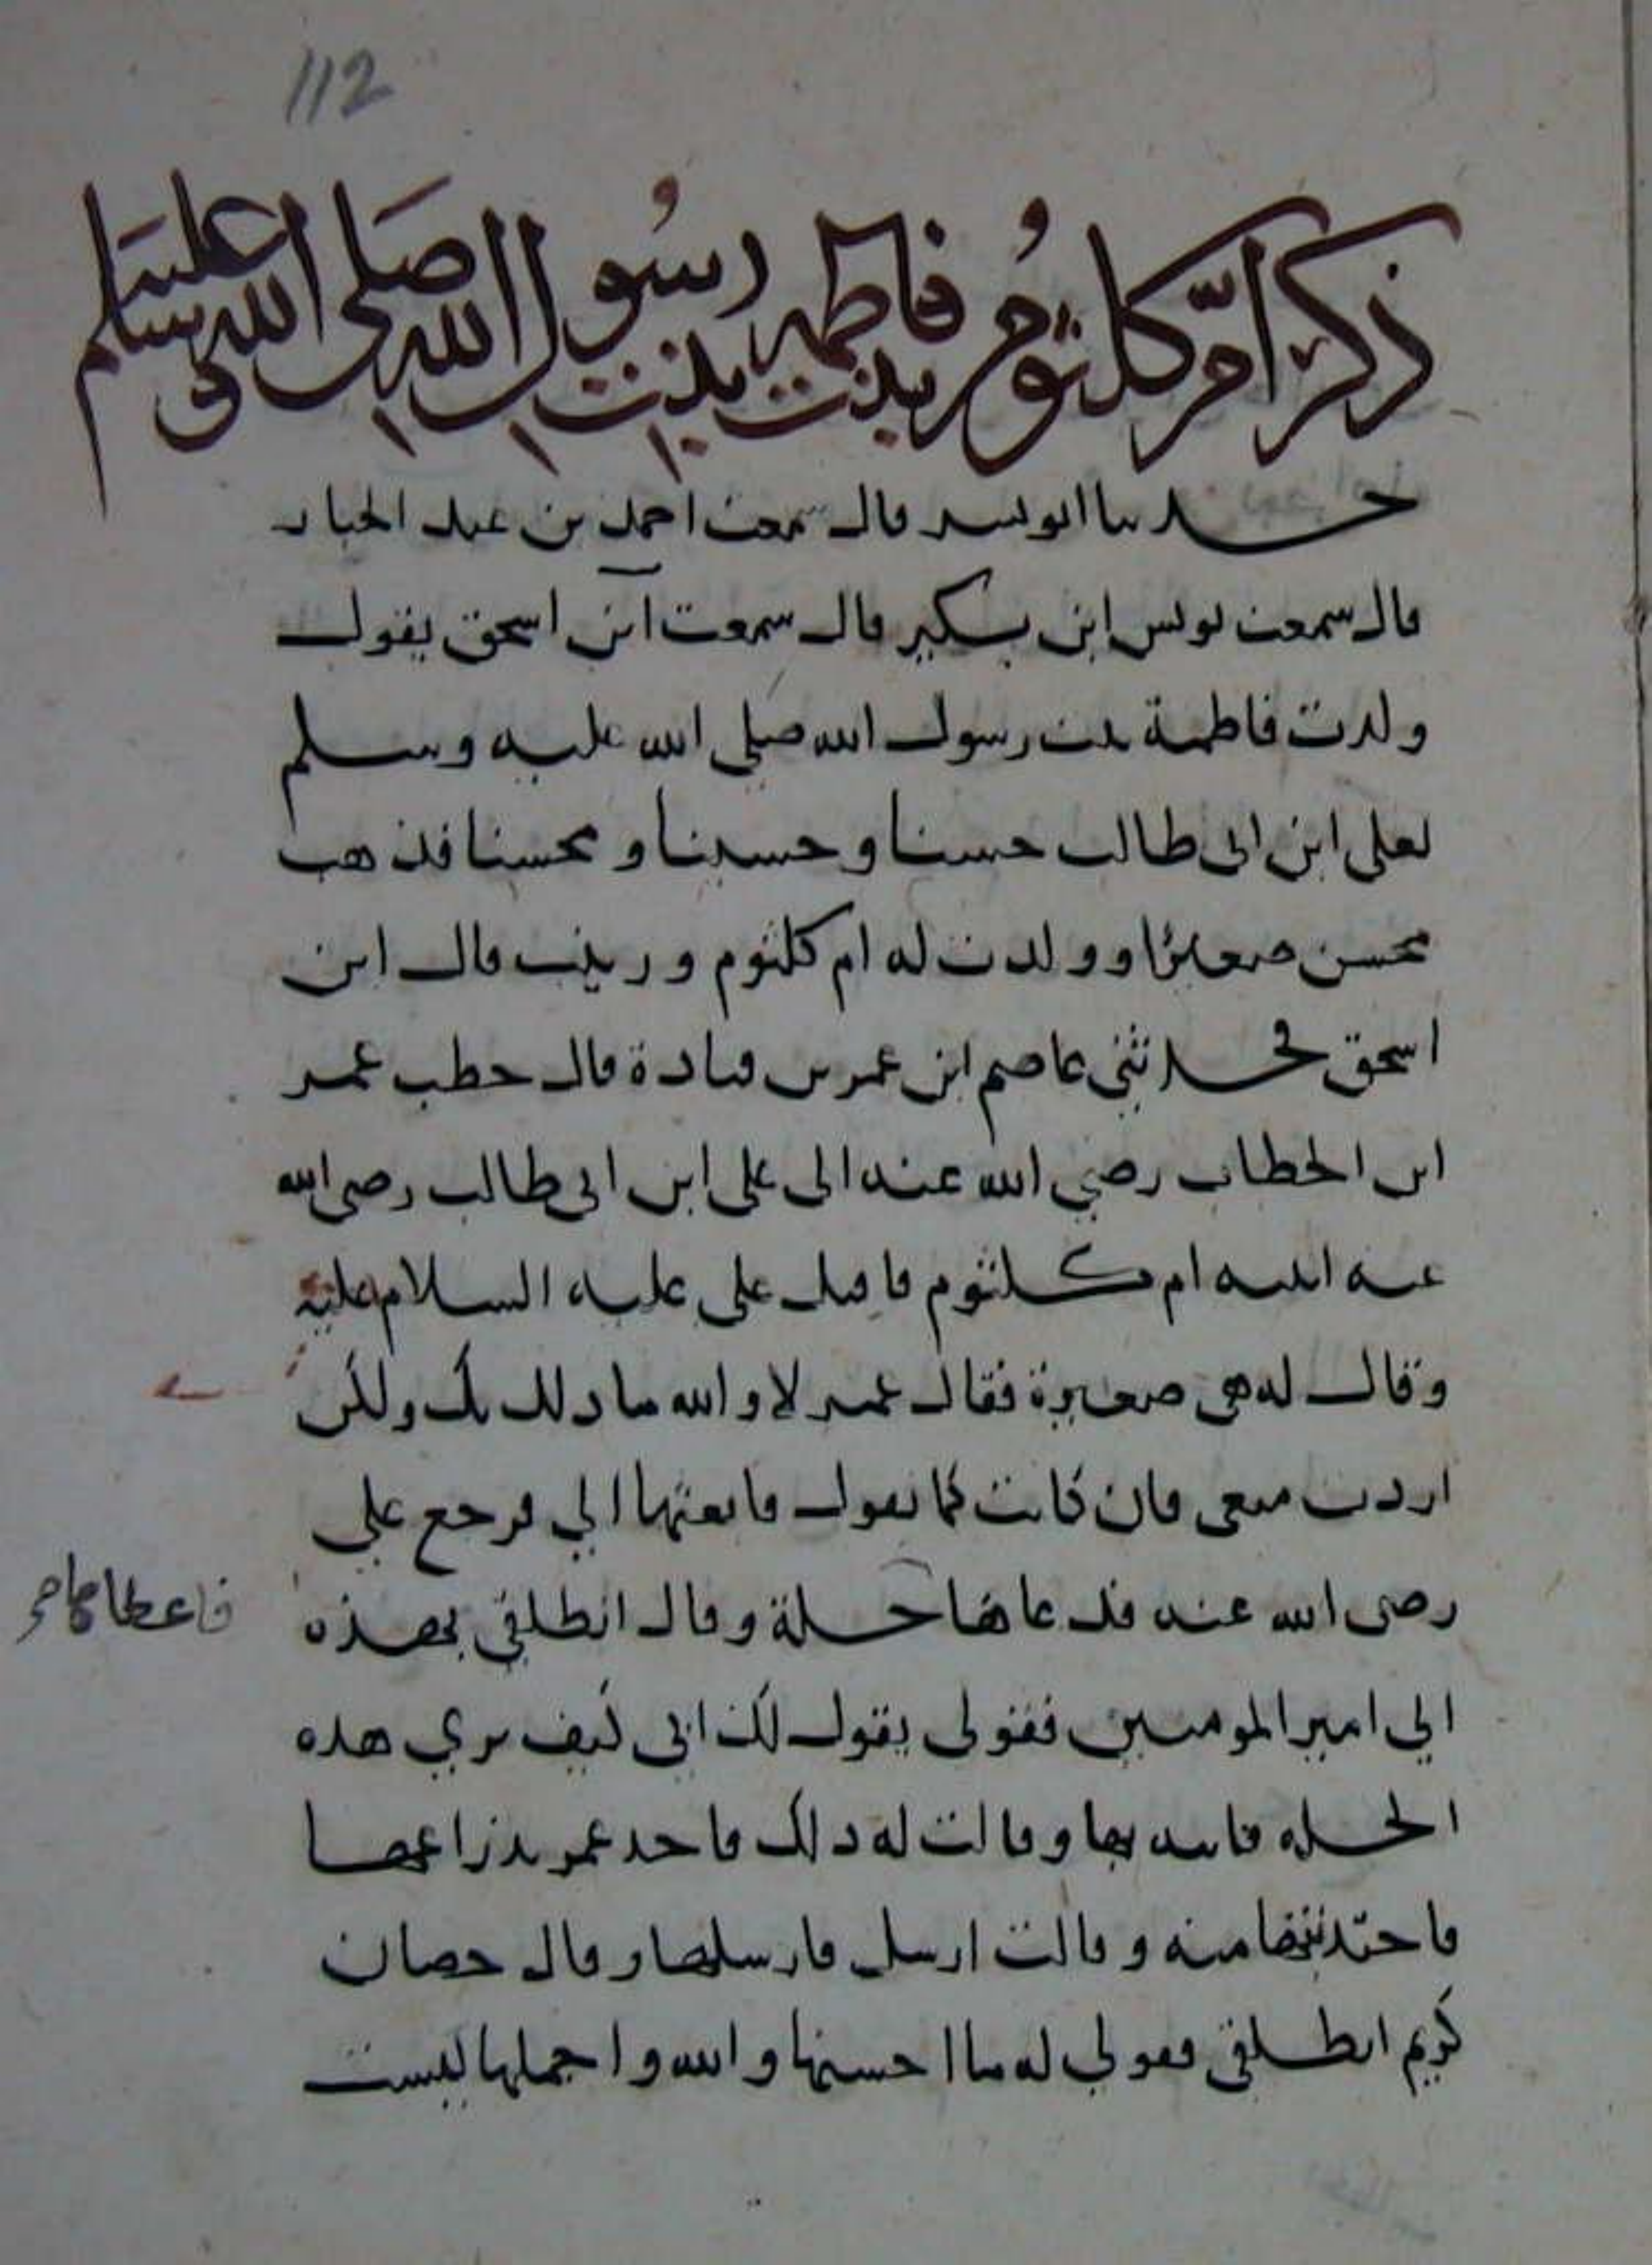 112
ذكر ام كلثوم بنت فاطمة بنت رسول الله صلى الله عليه وسلم
حدثنا ابو بشر قال سمعت احمد بن عبد الجبار
قال سمعت يونس ابن بكير قال سمعت ابن اسحق يقول
ولدت فاطمة بنت رسول الله صلى الله عليه وسلم
لعلى ابن ابى طالب حسنا وحسينا ومحسنا فذهب
محسن صغيرا وولدت له ام كلثوم وزينب قال ابن
اسحق فحدثنى عاصم ابن عمر بن قتادة قال خطب عمر
ابن الخطاب رضي الله عنه الى على ابن ابى طالب رضى الله
عنه ابنته ام كلثوم فاقبل على عليه السلام عليه
وقال له هى صغيرة فقال عمر لا والله ما ذلك بك ولكن
اردت منعى فان كانت كما تقول فابعثها الي فرجع علي
رضى الله عنه فدعاها حلة وقال انطلقى بهذه
فاعطاها
الي امير المومنين فقولى يقول لك ابى كيف تري هذه
الحله فاتته بها وقالت له ذلك فاخذ عمر بذراعها
فاجتذبتها منه وقالت ارسل فارسلها وقال حصان
كريم انطلقى فقولي له ما احسنها والله واجملها ليست